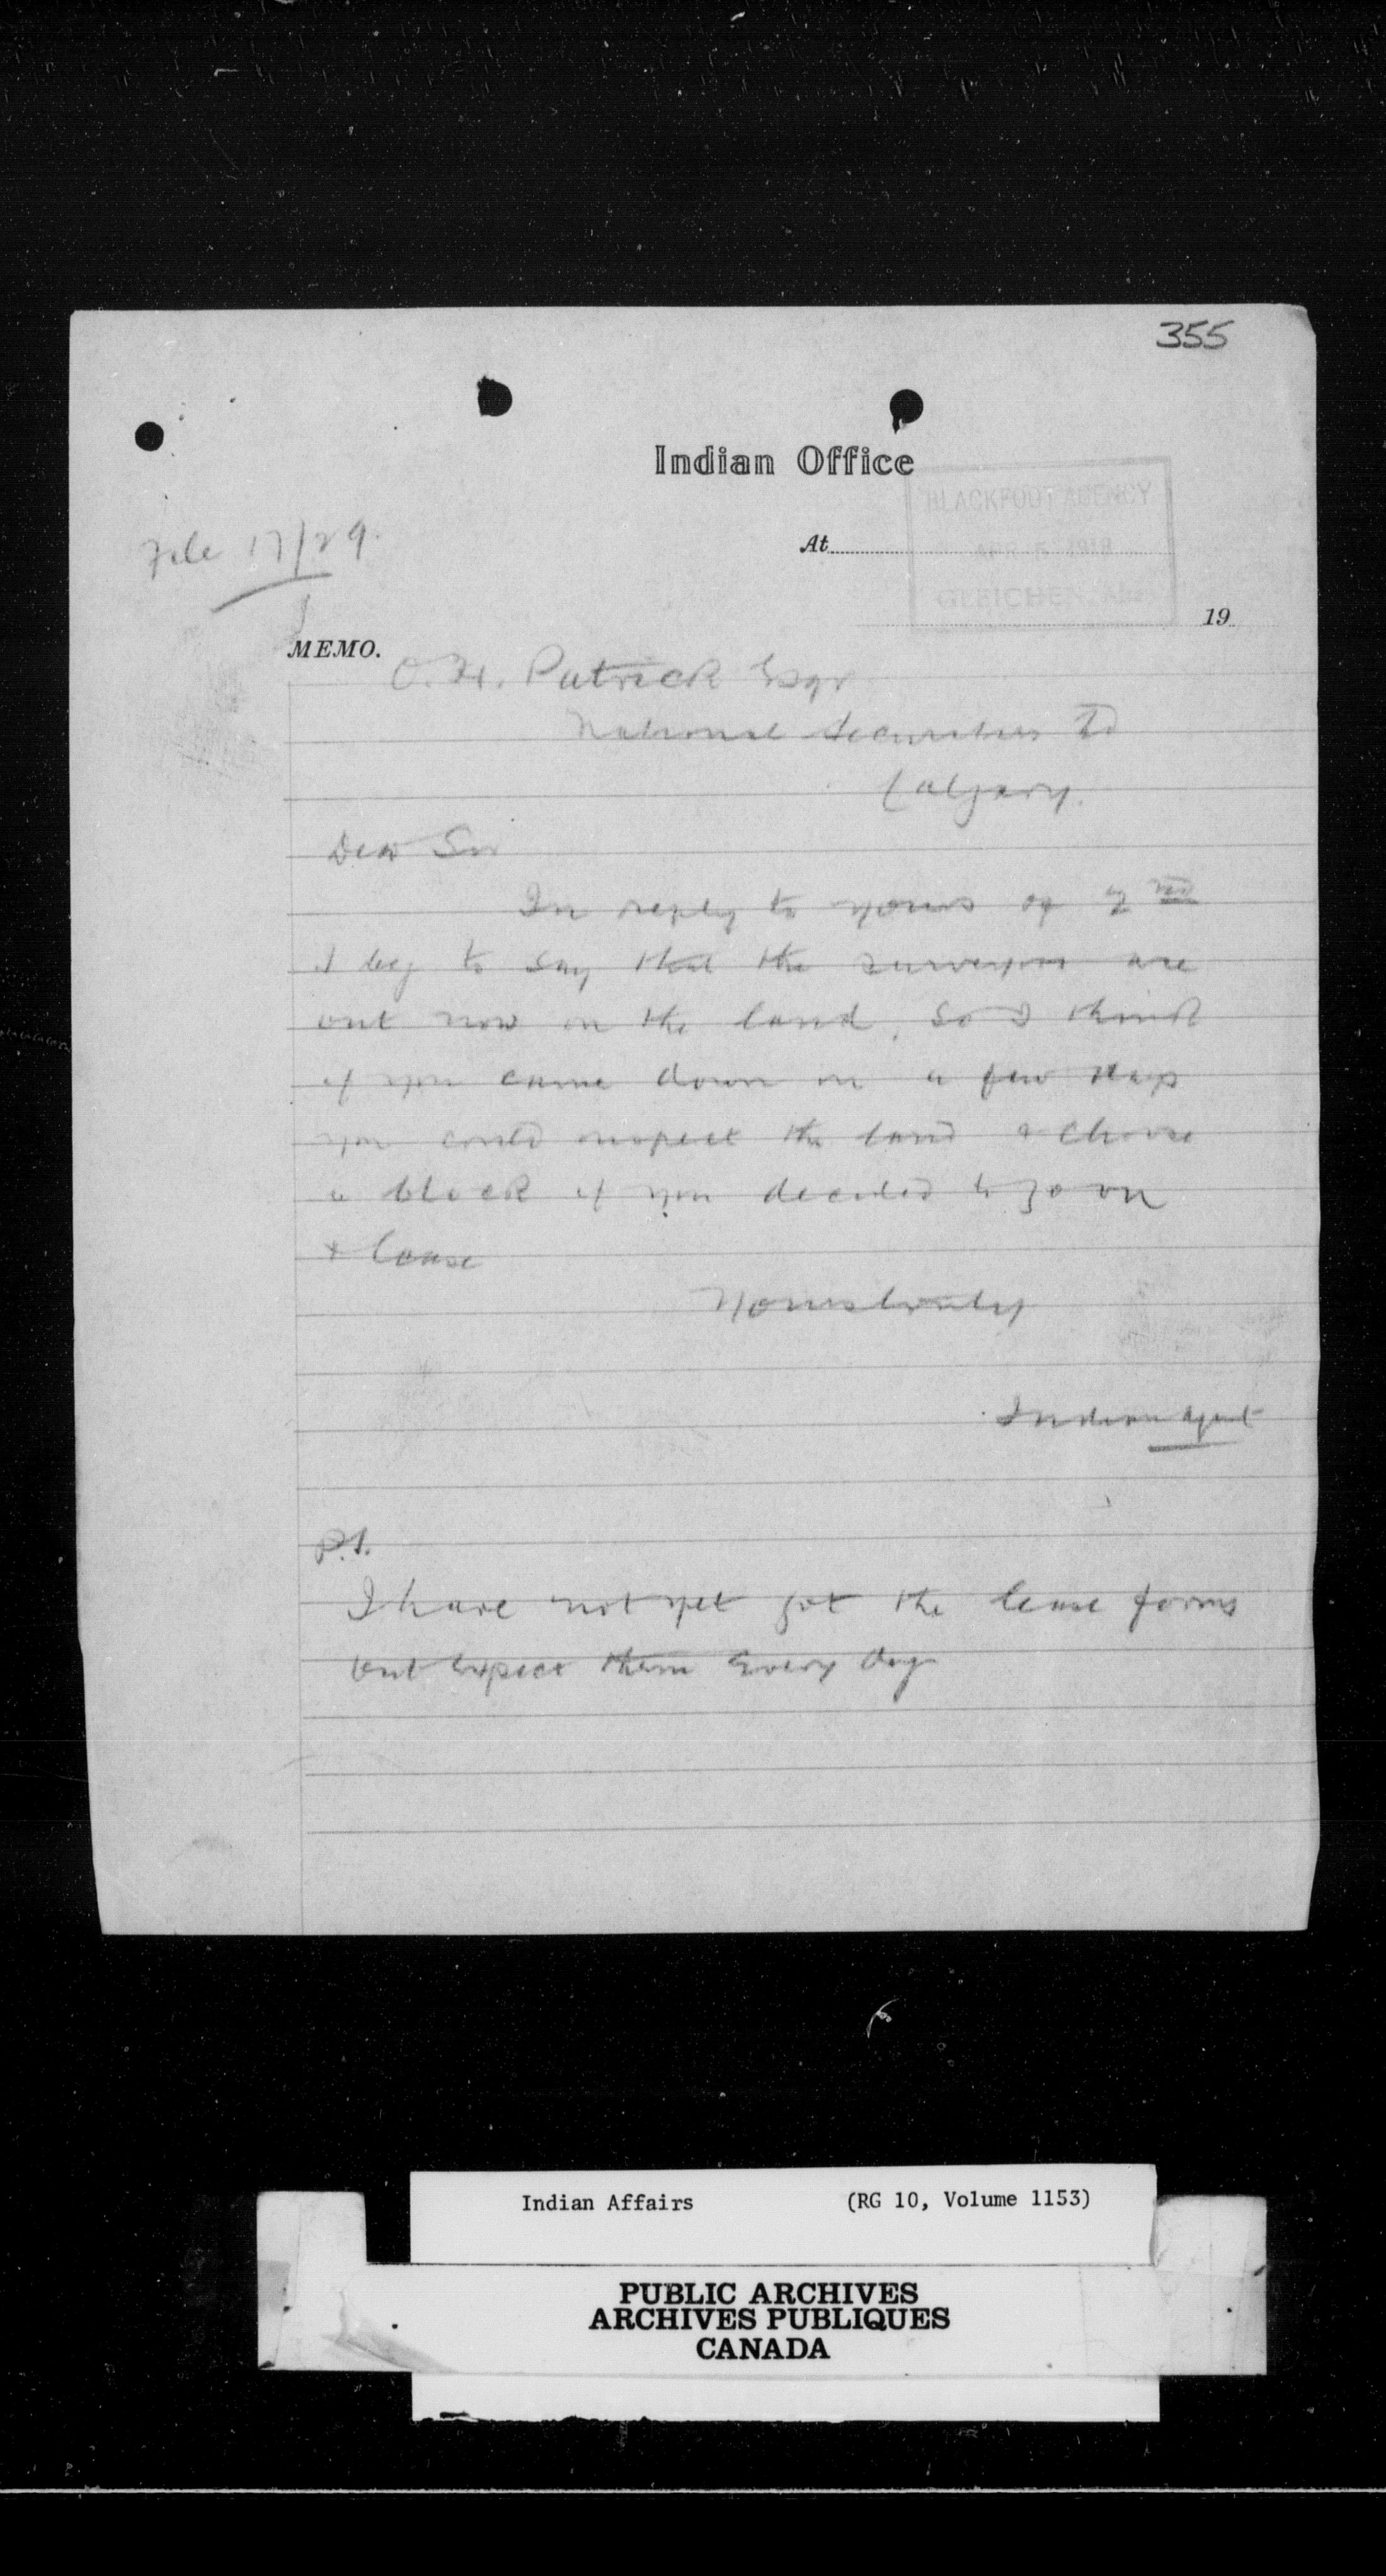 355
Indian Office
BLACKFOOT AGENCY
File 17/29.
At
APR 5 1918
GLEICHEN, Alta
19
MEMO.
O. H. Patrick Esqr
National Securities Ld
Calgary.
Dear Sir
In reply to yours of 2nd
I beg to say that the surveyors are
out now on the land, So I think
if you came down in a few days
you could inspect the land & choose
a block if you decided to go on
& lease
Yours truly
Indian Agent
P.S.
I have not yet got the lease forms
but expect them every day
Indian Affairs (RG 10, Volume 1153)
PUBLIC ARCHIVES
ARCHIVES PUBLIQUES
CANADA